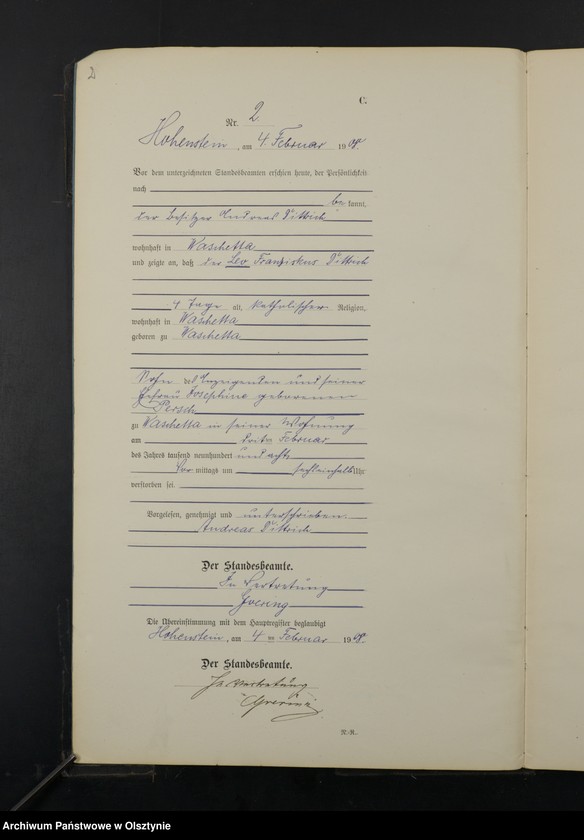 2
C.
Nr. 2
Hohenstein, am 4. Februar 1908.
Vor dem unterzeichneten Standesbeamten erschien heute, der Persönlichkeit
nach
be kannt,
der Besitzer Andreas Dittrich
wohnhaft in Waschetta
und zeigte an, daß der Leo Franziskus Dittrich
4 Tage alt, katholischer Religion,
wohnhaft in Waschetta
geboren zu Waschetta
Sohn des Anzeigenden und seiner
Ehefrau Josephine geborenen
Persch
zu Waschetta in seiner Wohnung
am Februar
des Jahres tausend neunhundert und acht
Vor mittags um Uhr
verstorben sei.
Vorgelesen, genehmigt und unterschrieben
Andreas Dittrich
Der Standesbeamte.
In Vertretung
Die Übereinstimmung mit dem Hauptregister beglaubigt
Hohenstein, am 4 Februar 1908.
Der Standesbeamte.
In Vertretung
N.-R.
Archiwum Państwowe w Olsztynie